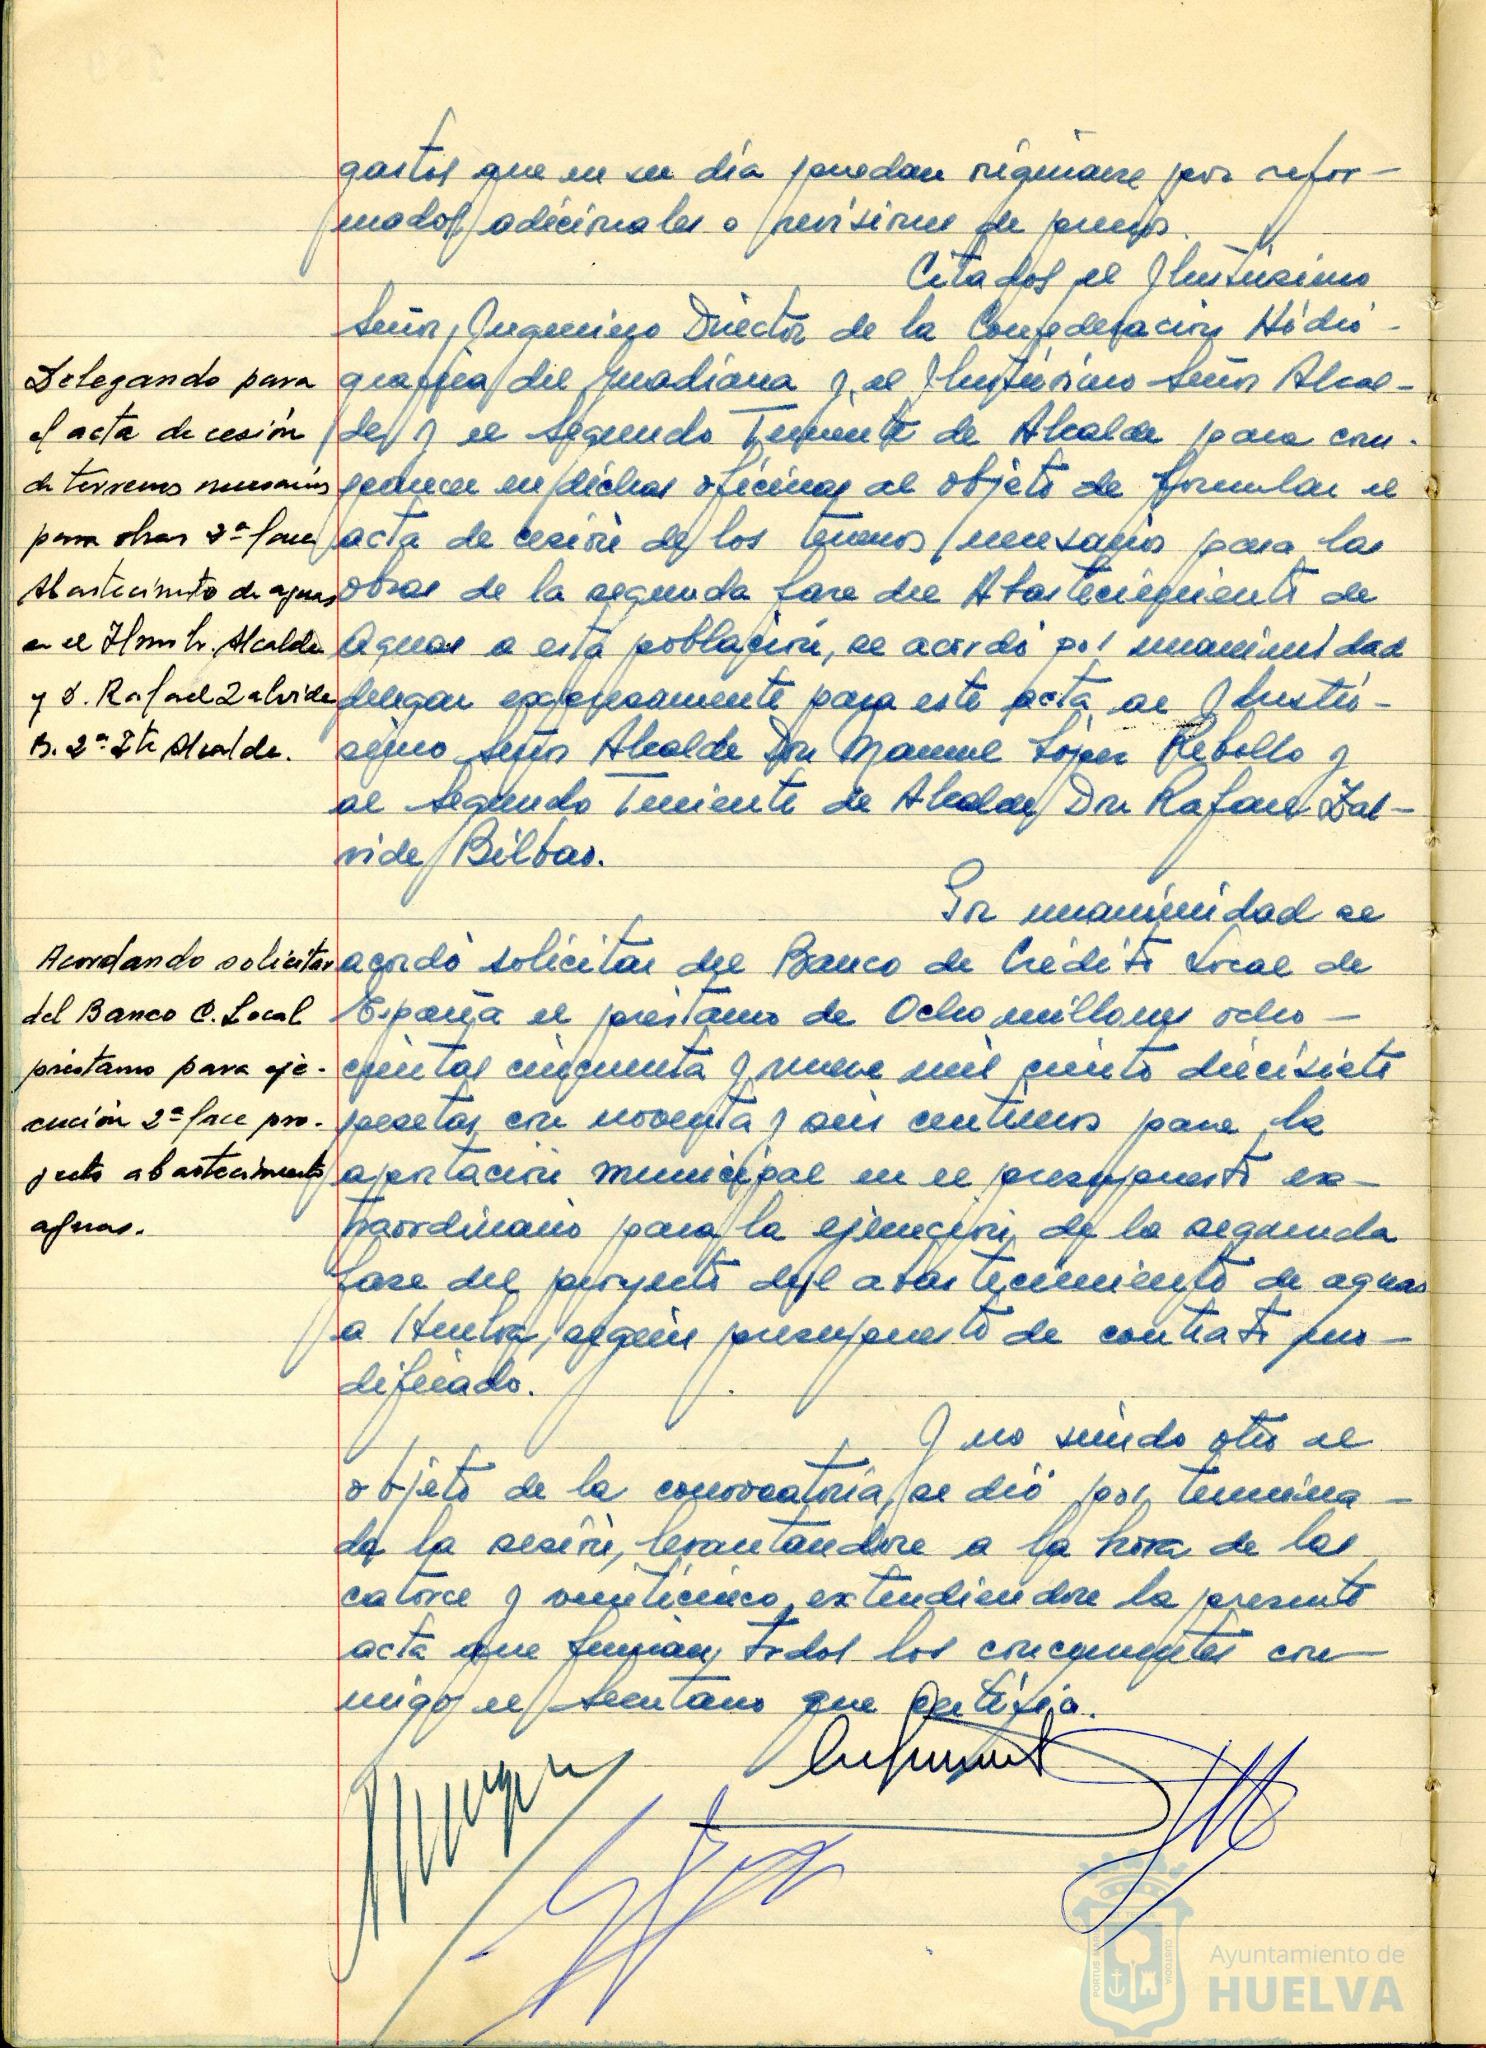 gastos que en su día puedan originarse por refor-
mados adicionales o revisiones de precios.
Citados el Ilustrisimo
Señor Ingeniero Director de la Confederación Hidro-
Delegando para
el acta de cesión
de terrenos necesarios
para obras 2ª fase
Abastecimiento de aguas
en el Ilmo Sr. Alcalde
y D. Rafael Zalvide
B. 2º Tte Alcalde.
gráfica del Guadiana y el Ilustrisimo Señor Alcal-
de y el Segundo Teniente de Alcalde para com-
parecer en dichas oficinas al objeto de formular el
acta de cesión de los terrenos necesarios para las
obras de la segunda fase del Abastecimiento de
Aguas a esta población, se acordó por unanimidad
delegar expresamente para este acta al Ilustri-
simo señor Alcalde Don Manuel López Rebollo y
al Segundo Teniente de Alcalde Don Rafael Zal-
vide Bilbao.
Por unanimidad se
Acordando solicitar
del Banco C. Local
préstamo para eje-
cución 2ª fase pro-
yecto abastecimiento
aguas.
acordó solicitar del Banco de Crédito Local de
España el préstamo de Ocho millones ocho-
cientas cincuenta y nueve mil ciento diecisiete
pesetas con noventa y seis centimos para la
aportación municipal en el presupuesto ex-
traordinario para la ejecución de la segunda
fase del proyecto del abastecimiento de aguas
a Huelva, según presupuesto de contrata mo-
dificado.
Y no siendo otro el
objeto de la convocatoria, se dió por termina-
da la sesión, levantandose a la hora de las
catorce y veinticinco, extendiendose la presente
acta que firman todos los concurrentes con-
migo el Secretario que certifico.
PORTUS MARIS
ET TERRAE
CUSTODIA
Ayuntamiento de
HUELVA